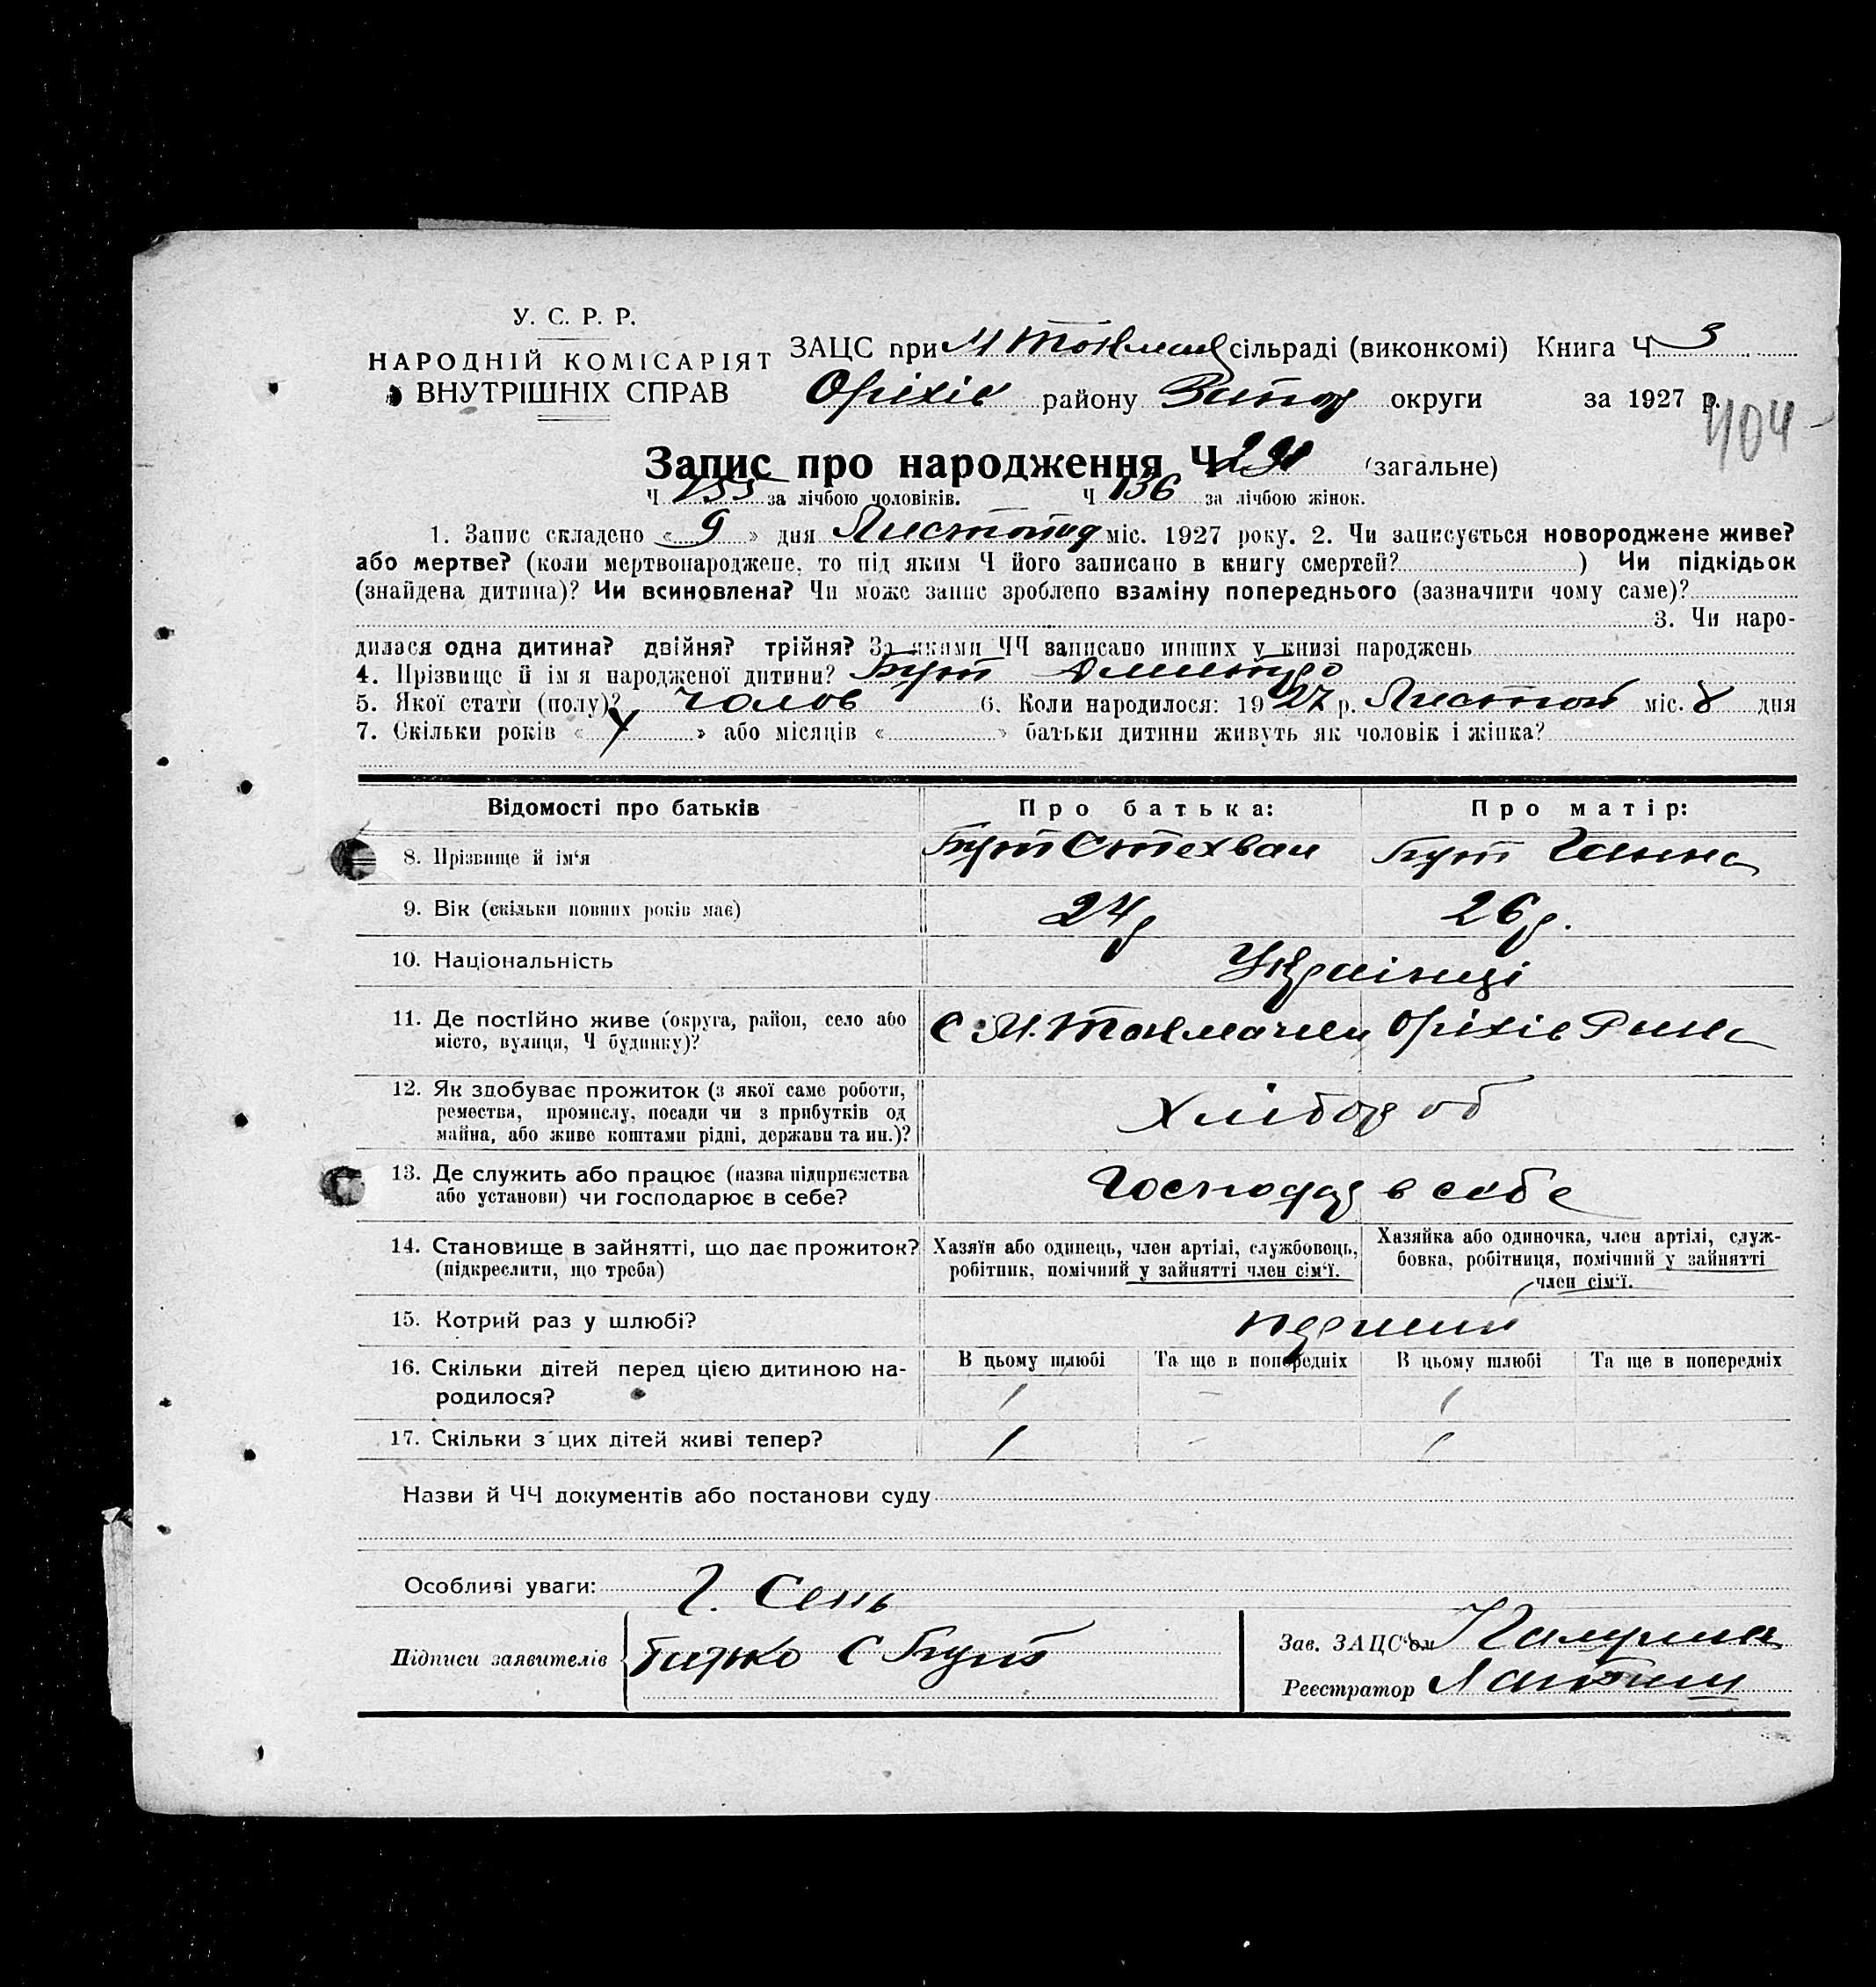 У. С. Р. Р.
НАРОДНІЙ КОМІСАРІЯТ
ВНУТРІШНІХ СПРАВ
ЗАЦС при М Токмац сільраді (виконкомі) Книга Ч 3
Оріхів району Запор округи за 1927 р.
404
Запис про народження Ч 291 (загальне)
Ч 155 за лічбою чоловіків. Ч 136 за лічбою жінок.
1. Запис складено « 9 » дня Листопад міс. 1927 року. 2. Чи записується новороджене живе?
або мертве? (коли мертвонароджене, то під яким Ч його записано в книгу смертей? ) Чи підкідьок
(знайдена дитина)? Чи всиновлена? Чи може запис зроблено взаміну попереднього (зазначити чому саме)?
3. Чи наро-
дилася одна дитина? двійня? трійня? За якими ЧЧ записано инших у книзі народжень
4. Прізвище й імя народженої дитини? Бут Дмитро
5. Якої стати (полу)? Чолов 6. Коли народилося: 1927 р. Листоп міс. 8 дня
7. Скільки років « 4 » або місяців « » батьки дитини живуть як чоловік і жінка?
Відомості про батьків Про батька: Про матір:
8. Прізвище й ім'я Бут Стехван Бут Ганна
9. Вік (скільки повних років має) 24р 26р.
10. Національність Українці
11. Де постійно живе (округа, район, село або С М. Токмачки Оріхів
місто, вулиця, Ч будинку)?
12. Як здобуває прожиток (з якої саме роботи,
ремества, промислу, посади чи з прибутків од Хлібороб
майна, або живе коштами рідні, держави та ин.)?
13. Де служить або працює (назва підприємства
або установи) чи господарює в себе? Господар в себе
14. Становище в зайнятті, що дає прожиток?
(підкреслити, що треба)
Хазяїн або одинець, член артілі, службовець,
робітник, помічний у зайнятті член сім'ї.
Хазяйка або одиночка, член артілі, служ-
бовка, робітниця, помічний у зайнятті
член сім'ї.
15. Котрий раз у шлюбі? перший
16. Скільки дітей перед цією дитиною на-
родилося?
В цьому шлюбі Та ще в попередніх В цьому шлюбі Та ще в попередніх
1 – 1
17. Скільки з цих дітей живі тепер? 1 – 1
Назви й ЧЧ документів або постанови суду
Особливі уваги: Г. Сень
Підписи заявителів Батько С Бут
Зав. ЗАЦС'ом
Реєстратор